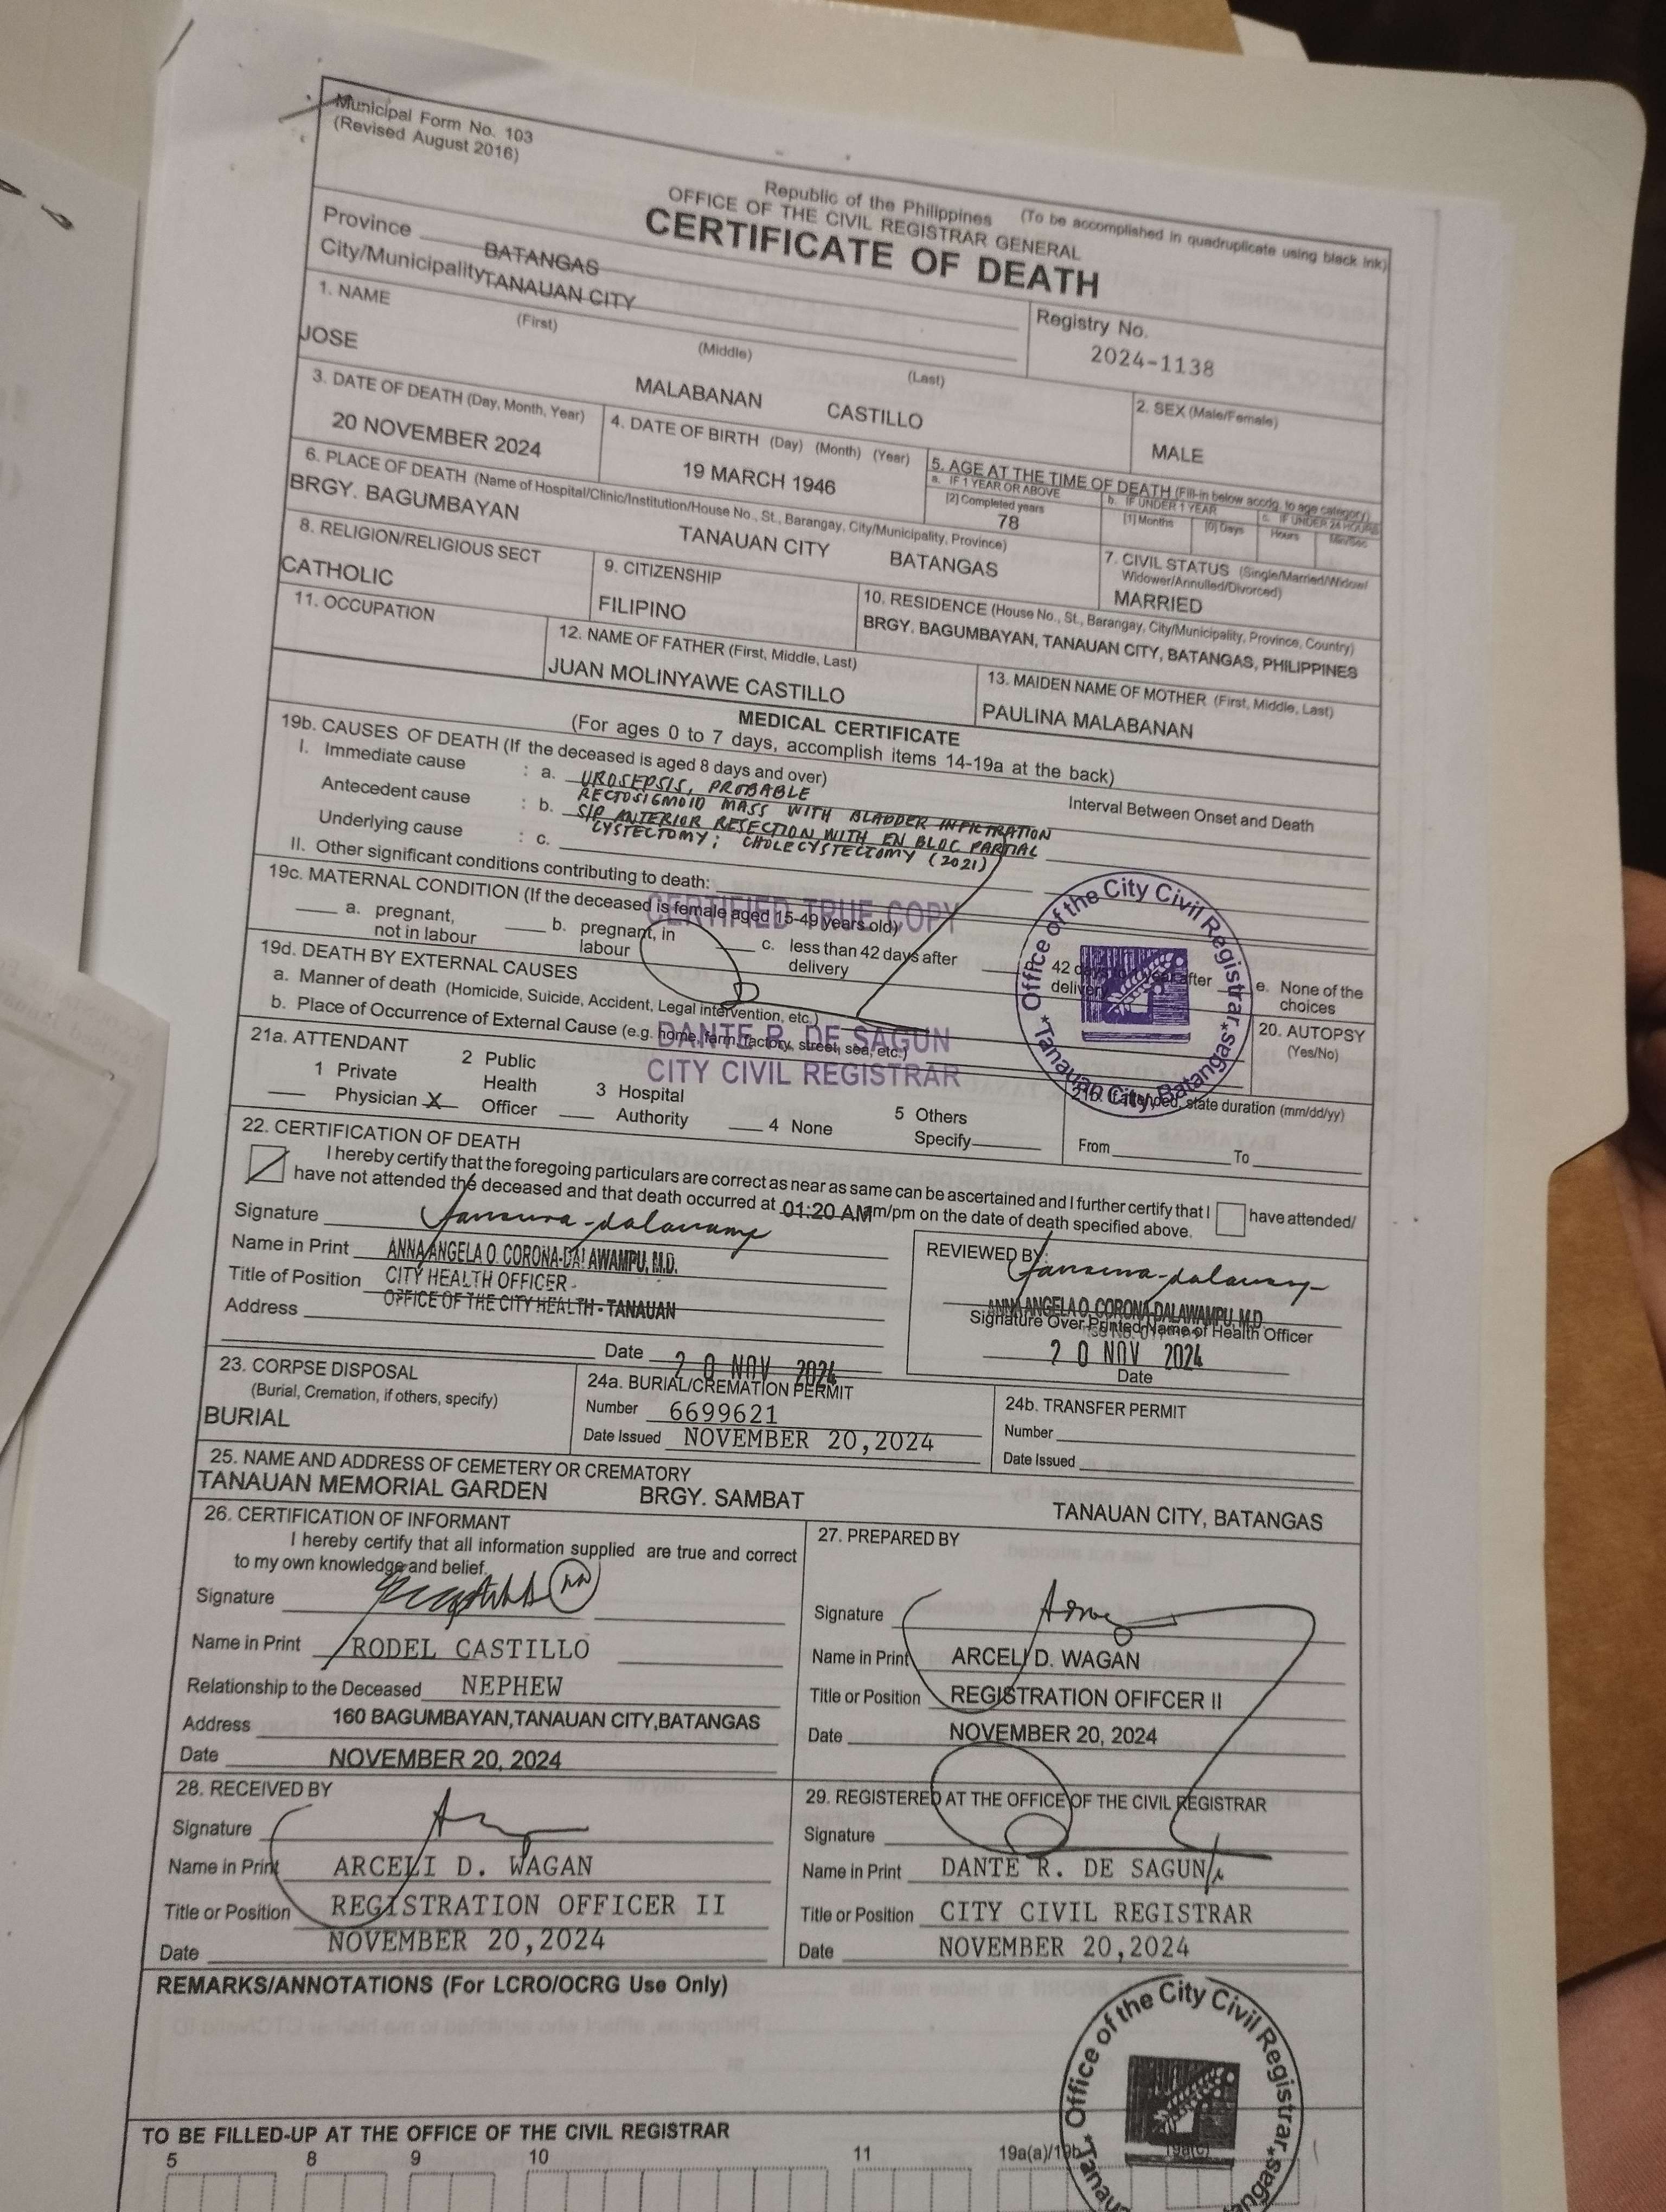 Municipal Form No. 103
(Revised August 2016)
(To be accomplished in quadruplicate using black ink)
Republic of the Philippines
OFFICE OF THE CIVIL REGISTRAR GENERAL
CERTIFICATE OF DEATH
Province BATANGAS
City/Municipality TANAUAN CITY
Registry No.
2024-1138
1. NAME (First) (Middle) (Last)
JOSE MALABANAN CASTILLO
2. SEX (Male/Female)
MALE
3. DATE OF DEATH (Day, Month, Year)
20 NOVEMBER 2024
4. DATE OF BIRTH (Day) (Month) (Year)
19 MARCH 1946
5. AGE AT THE TIME OF DEATH (Fill-in below accdg. to age category)
a. IF 1 YEAR OR ABOVE
[2] Completed years
78
b. IF UNDER 1 YEAR
[1] Months [0] Days
c. IF UNDER 24 HOURS
Hours Min/Sec
6. PLACE OF DEATH (Name of Hospital/Clinic/Institution/House No., St., Barangay, City/Municipality, Province)
BRGY. BAGUMBAYAN TANAUAN CITY BATANGAS
7. CIVIL STATUS (Single/Married/Widow/
Widower/Annulled/Divorced)
MARRIED
8. RELIGION/RELIGIOUS SECT
CATHOLIC
9. CITIZENSHIP
FILIPINO
10. RESIDENCE (House No., St., Barangay, City/Municipality, Province, Country)
BRGY. BAGUMBAYAN, TANAUAN CITY, BATANGAS, PHILIPPINES
11. OCCUPATION
12. NAME OF FATHER (First, Middle, Last)
JUAN MOLINYAWE CASTILLO
13. MAIDEN NAME OF MOTHER (First, Middle, Last)
PAULINA MALABANAN
MEDICAL CERTIFICATE
(For ages 0 to 7 days, accomplish items 14-19a at the back)
19b. CAUSES OF DEATH (If the deceased is aged 8 days and over)
Interval Between Onset and Death
I. Immediate cause : a. UROSEPSIS, PROBABLE
RECTOSIGMOID MASS WITH BLADDER INFILTRATION
Antecedent cause : b. S/P ANTERIOR RESECTION WITH EN BLOC PARTIAL
CYSTECTOMY; CHOLECYSTECTOMY (2021)
Underlying cause : c.
II. Other significant conditions contributing to death:
19c. MATERNAL CONDITION (If the deceased is female aged 15-49 years old)
a. pregnant,
not in labour
b. pregnant, in
labour
c. less than 42 days after
delivery
42 days to 1 year after
delivery
e. None of the
choices
CERTIFIED TRUE COPY
DANTE R. DE SAGUN
CITY CIVIL REGISTRAR
Office of the City Civil Registrar
*Tanauan City, Batangas*
19d. DEATH BY EXTERNAL CAUSES
a. Manner of death (Homicide, Suicide, Accident, Legal intervention, etc.)
b. Place of Occurrence of External Cause (e.g. home, farm, factory, street, sea, etc.)
20. AUTOPSY
(Yes/No)
21a. ATTENDANT
1 Private
Physician
X 2 Public
Health
Officer
3 Hospital
Authority
4 None
5 Others
Specify
21b. If attended, state duration (mm/dd/yy)
From To
22. CERTIFICATION OF DEATH
I hereby certify that the foregoing particulars are correct as near as same can be ascertained and I further certify that I have attended/
have not attended the deceased and that death occurred at 01:20 AM am/pm on the date of death specified above.
Signature
Name in Print ANNA ANGELA O. CORONA-DALAWAMPU, M.D.
Title of Position CITY HEALTH OFFICER
Address OFFICE OF THE CITY HEALTH - TANAUAN
Date 20 NOV 2024
REVIEWED BY:
ANNA ANGELA O. CORONA-DALAWAMPU, M.D.
Signature Over Printed Name of Health Officer
20 NOV 2024
Date
23. CORPSE DISPOSAL
(Burial, Cremation, if others, specify)
BURIAL
24a. BURIAL/CREMATION PERMIT
Number 6699621
Date Issued NOVEMBER 20,2024
24b. TRANSFER PERMIT
Number
Date Issued
25. NAME AND ADDRESS OF CEMETERY OR CREMATORY
TANAUAN MEMORIAL GARDEN BRGY. SAMBAT TANAUAN CITY, BATANGAS
26. CERTIFICATION OF INFORMANT
I hereby certify that all information supplied are true and correct
to my own knowledge and belief.
Signature
Name in Print RODEL CASTILLO
Relationship to the Deceased NEPHEW
Address 160 BAGUMBAYAN,TANAUAN CITY,BATANGAS
Date NOVEMBER 20, 2024
27. PREPARED BY
Signature
Name in Print ARCELI D. WAGAN
Title or Position REGISTRATION OFIFCER II
Date NOVEMBER 20, 2024
28. RECEIVED BY
Signature
Name in Print ARCELI D. WAGAN
Title or Position REGISTRATION OFFICER II
Date NOVEMBER 20,2024
29. REGISTERED AT THE OFFICE OF THE CIVIL REGISTRAR
Signature
Name in Print DANTE R. DE SAGUN
Title or Position CITY CIVIL REGISTRAR
Date NOVEMBER 20,2024
REMARKS/ANNOTATIONS (For LCRO/OCRG Use Only)
Office of the City Civil Registrar
TO BE FILLED-UP AT THE OFFICE OF THE CIVIL REGISTRAR
5 8 9 10 11 19a(a)/19b 19a(c)